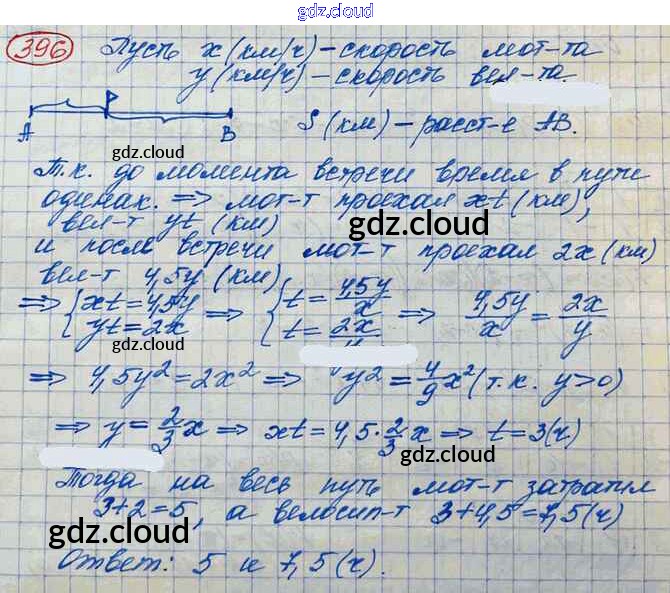 gdz.cloud
396 Пусть x (км/ч) – скорость мот-та
y (км/ч) – скорость вел-та.
A P B S (км) – расст-е AB.
gdz.cloud
Т.к. до момента встречи время в пути
одинак. ⇒ мот-т проехал xt (км),
вел-т yt (км)
gdz.cloud
и после встречи мот-т проехал 2x (км)
вел-т 4,5y (км)
⇒ { xt = 4,5y yt = 2x ⇒ { t = 4,5y/x t = 2x/ ⇒ 4,5y/x = 2x/y
gdz.cloud
⇒ 4,5y² = 2x² ⇒ y² = 4/9 x² (т.к. y>0)
⇒ y = 2/3 x ⇒ xt = 4,5 · 2/3 x ⇒ t = 3 (ч)
gdz.cloud
Тогда на весь путь мот-т затратил
3+2=5, а велосип-т 3+4,5=7,5 (ч)
gdz.cloud
gdz.cloud
Ответ: 5 и 7,5 (ч).